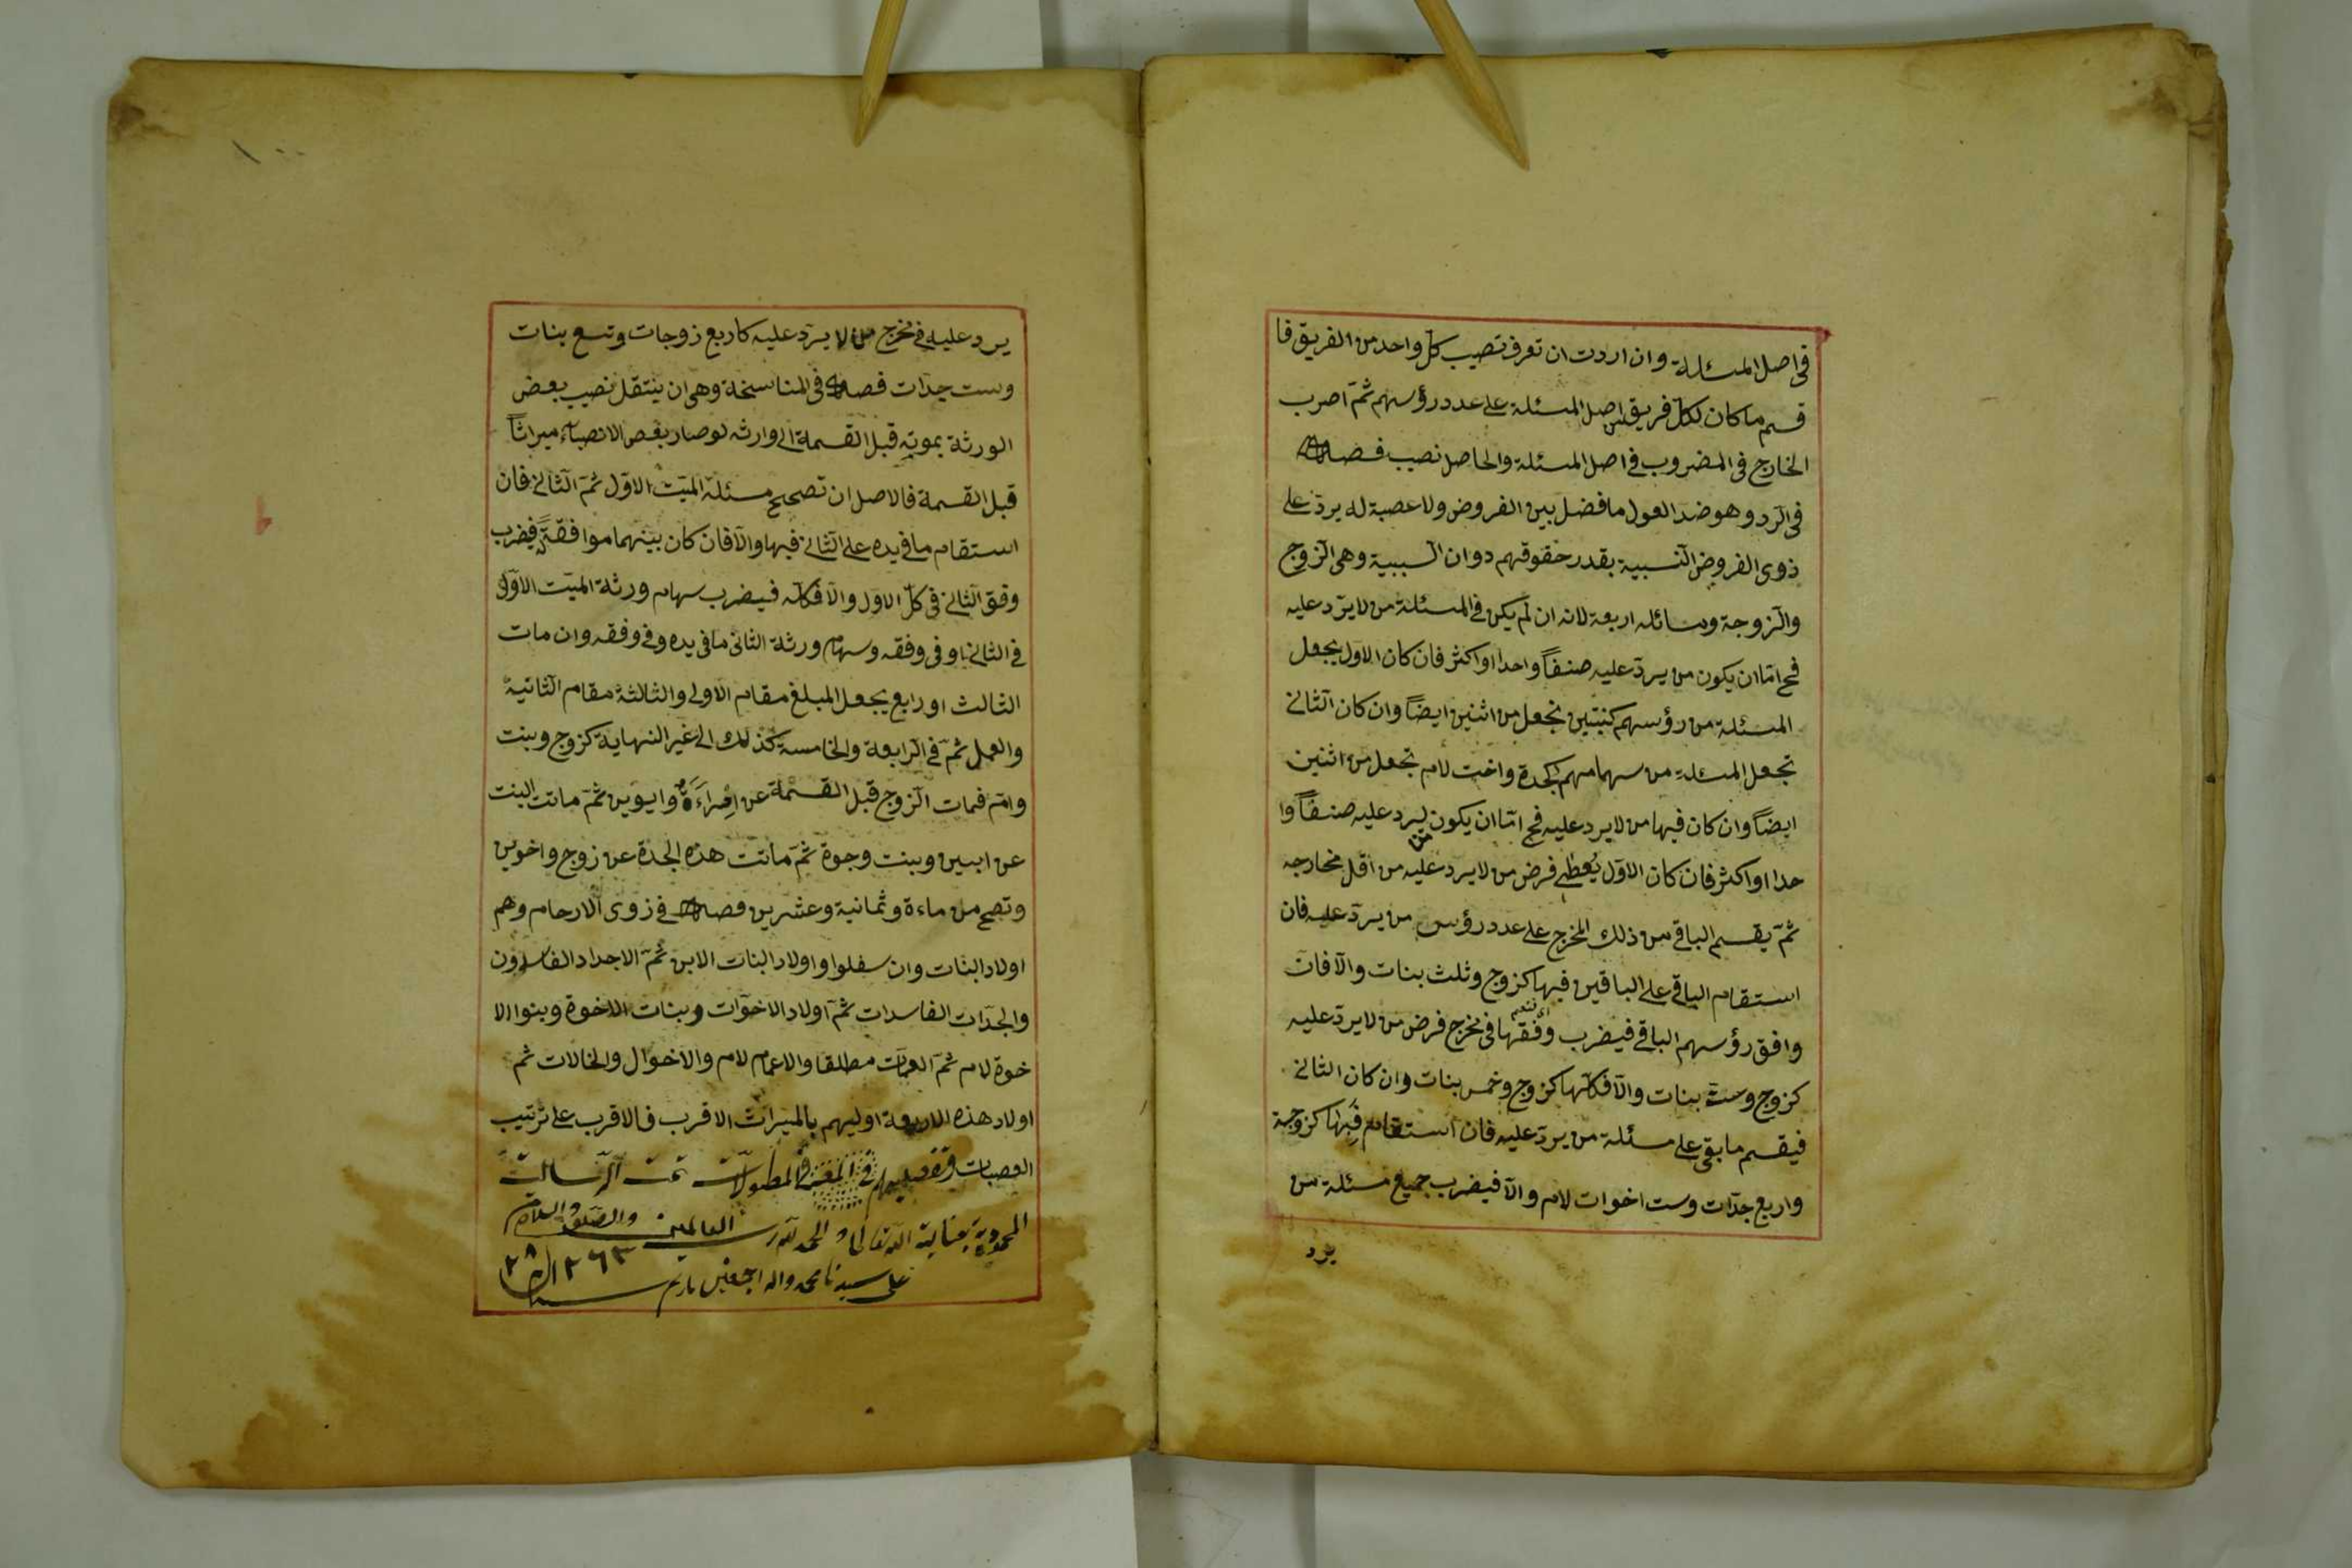 فى اصل المسئلة وان اردت ان تعرف نصيب كلّ واحد من الفريق فا
قسم ما كان لكلّ فريق من اصل المسئلة على عدد رؤسهم ثمّ اضرب
الخارج فى المضروب فى اصل المسئلة والحاصل نصيب فصل
فى الرّد وهو ضد العول ما فضل بين الفروض ولا عصبة له يردّ على
ذوى الفروض النّسبية بقدر حقوقهم دوان السّببية وهى الزّوج
والزّوجة ومسائله اربعة لانه ان لم يكن فى المسئلة من لا يردّ عليه
فح امّا ان يكون من يردّ عليه صنفاً واحدا او اكثر فان كان الاوّل يجعل
المسئلة من رؤسهم كبنتين نجعل من اثنين ايضاً وان كان الثّانى
تجعل المسئلة من سهامهم كجدة واخت لام تجعل من اثنين
ايضاً وان كان فيها من لا يرد عليه فح امّا ان يكون من يرد عليه صنفاً وا
حدا او اكثر فان كان الاوّل يُعطى فرض من لا يرد عليه من اقل مخارجه
ثمّ يقسم الباقى من ذلك المخرج على عدد رؤس من يردّ عليه فان
استقام الباقى على الباقين فيها كزوج وثلث بنات والّا فان
وافق رؤسهم الباقى فيضرب وفقها فى مخرج فرض من لا يردّ عليه
كزوج وستّ بنات والّا فكلّها كزوج وخمس بنات وان كان الثانى
فيقسم ما بقى على مسئلة من يردّ عليه فان استقام فبها كزوجة
واربع جدّات وست اخوات لام والّا فيضرب جميع مسئلة من
يرد
١٠٠
يرد عليه فى مخرج من لا يردّ عليه كاربع زوجات وتسع بنات
وست جدّات فصل فى المناسخة وهى ان ينتقل نصيب بعض
الورثة بموته قبل القسمة الى وارثه لو صار بعض الانصباء ميراثاً
قبل القسمة فالاصل ان تصحح مسئلة الميّت الاوّل ثمّ الثّانى فان
استقام ما فى يده على الثّانى فيها والّا فان كان بينهما موافقةً فيضرب
وفق الثّانى فى كلّ الاول والّا فكلّه فيضرب سهام ورثة الميّت الاوّل
فى الثانى او فى وفقه وسهام ورثة الثانى ما فى يده وفى وفقه وان مات
الثالث او رابع يجعل المبلغ مقام الاولى والثالثة مقام الثّانية
والعمل ثمّ فى الرّابعة والخامسة كذلك الى غير النهاية كزوج وبنت
وامّ فمات الزّوج قبل القسمة عن اِمْراءَةٌ وابوين ثمّ ماتت البنت
عن ابنين وبنت وجدة ثمّ ماتت هذه الجدة عن زوج واخوين
وتصح من ماءة وثمانية وعشرين فصل فى زوى الارحام وهم
اولاد البنات وان سفلوا واولاد البنات الابن ثمّ الاجداد الفاسدون
والجدّات الفاسدات ثمّ اولاد الاخوات وبنات الاخوة وبنوا الا
خوة لام ثمّ العمّات مطلقا والاعمام لام والاخوال والخالات ثم
اولاد هذه الاربعة اوليهم بالميراث الاقرب فالاقرب على ترتيب
العصبات وتفصيلهم فى المطولات تمت الرّسالة
بعناية الله تعالى والحمد لله رب العالمين والصّلوة والسلام
على سيدنا محمد واله اجمعين سنة ١٢٦٣